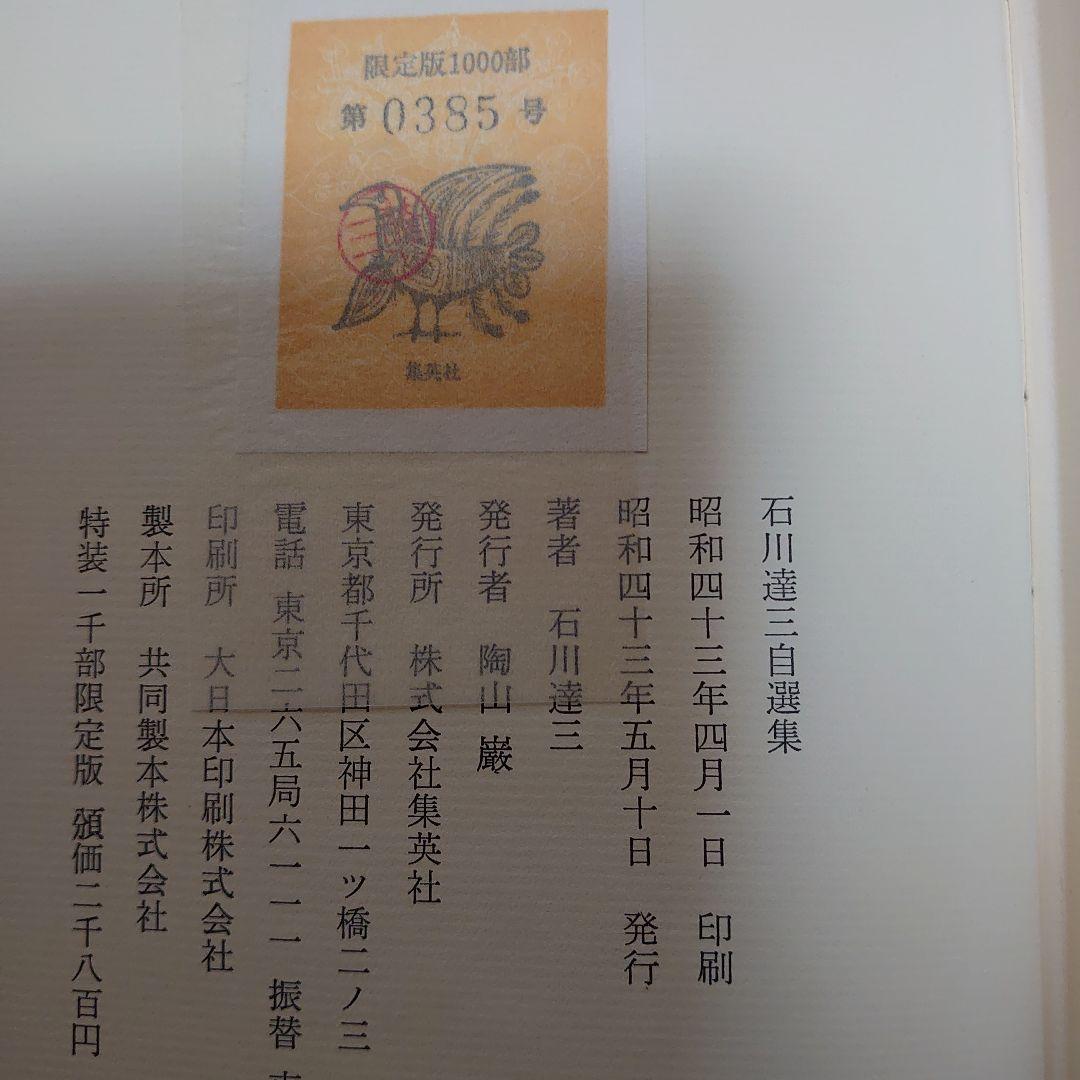 限定版1000部
第 0385 号
集英社
石川達三自選集
昭和四十三年四月一日 印刷
昭和四十三年五月十日 発行
著者 石川達三
発行者 陶山 巌
発行所 株式会社集英社
東京都千代田区神田一ツ橋二ノ三
電話 東京二六五局六一一一 振替
印刷所 大日本印刷株式会社
製本所 共同製本株式会社
特装一千部限定版 頒価二千八百円